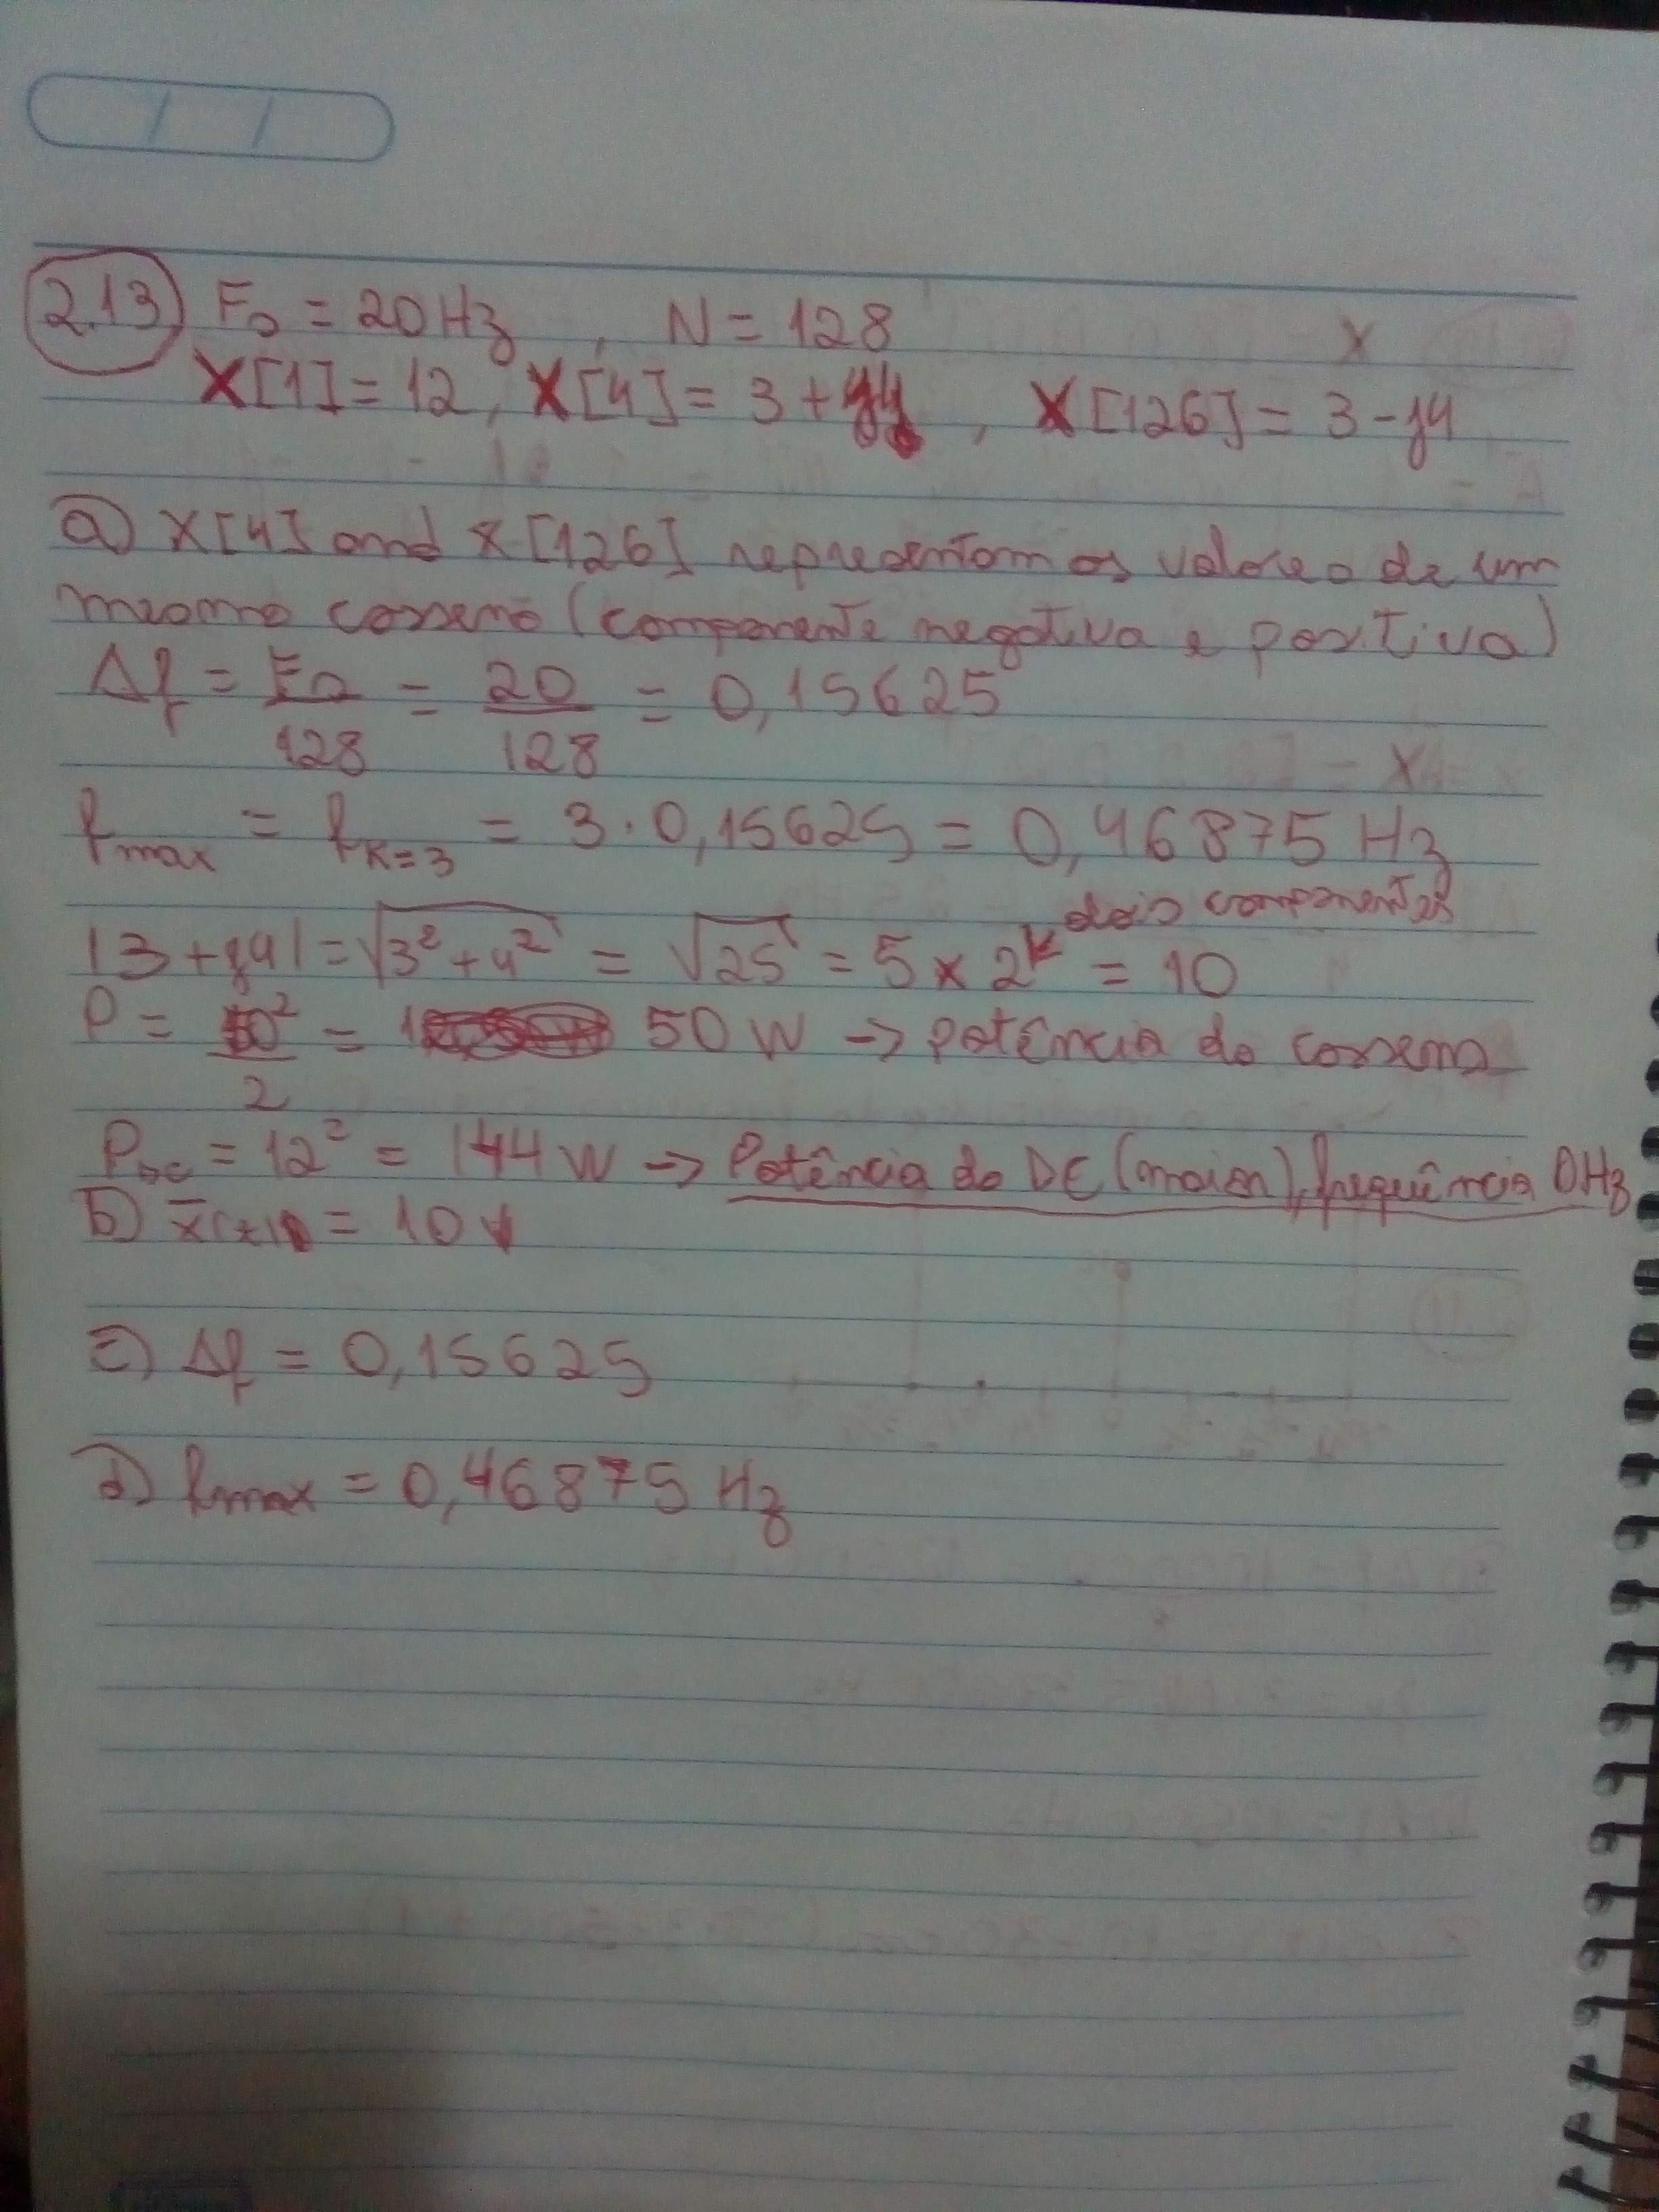 2.13 Fs = 20 Hz, N = 128
X[1] = 12, X[4] = 3 + j4, X[126] = 3 - j4
a) X[4] and X[126] representam os valores de um
mesmo cosseno (componente negativa e positiva)
Δf = Fs/128 = 20/128 = 0,15625
fmax = fk=3 = 3 · 0,15625 = 0,46875 Hz
|3 + j4| = √(3² + 4²) = √25 = 5 × 2 = 10
dois componentes
P = 10²/2 = 50 W → potência do cosseno
PDC = 12² = 144 W → Potência do DC (maior), frequência 0 Hz
b) = 10
c) Δf = 0,15625
d) fmax = 0,46875 Hz